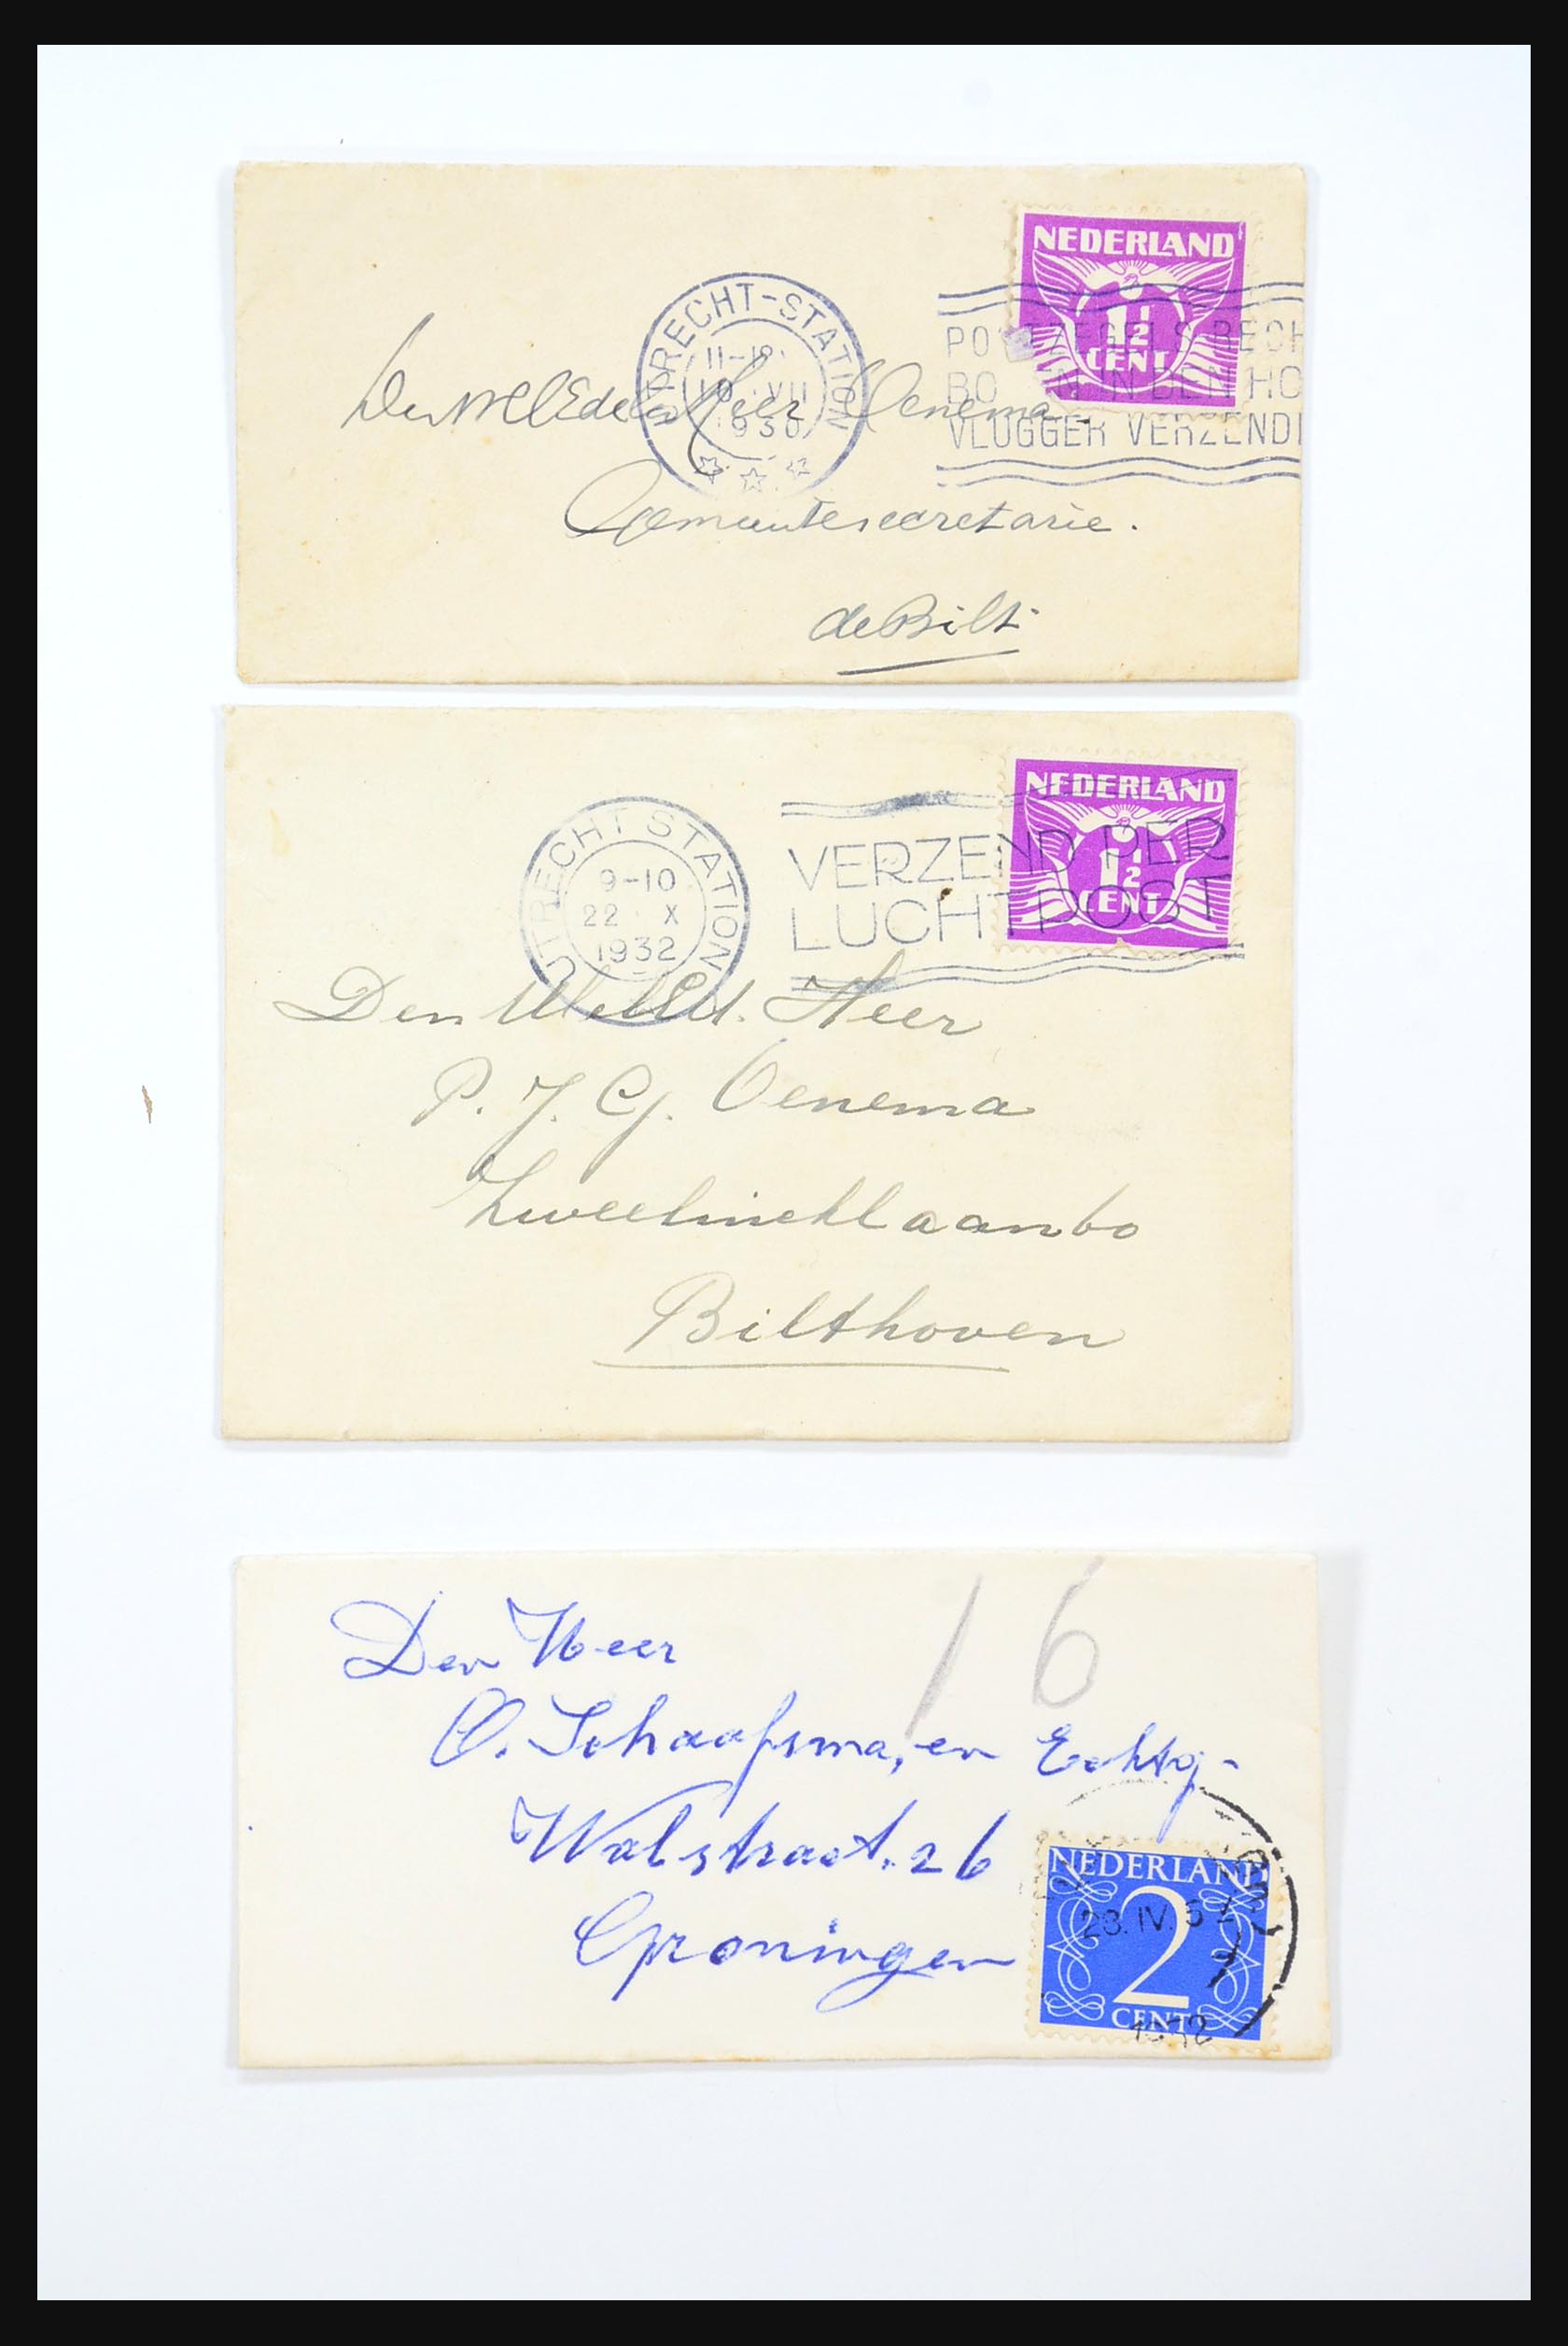 NEDERLAND
1½
CENT
UTRECHT-STATION
11-12
10 VII
1930
POSTZEGELS RECH
BO EN IN DEN HO
VLUGGER VERZENDI
Den WelEdelen Heer Oenema
Gemeentesecretarie.
de Bilt
NEDERLAND
1½
CENT
UTRECHT STATION
9-10
22 X
1932
VERZEND PER
LUCHTPOST
Den WelEd. Heer
P. J. G. Oenema
Sweelincklaan 60
Bilthoven
16
Den Heer
O. Schaafsma, en Echtg-
Walstraat. 26
Groningen
NEDERLAND
2
CENT
23. IV. 5